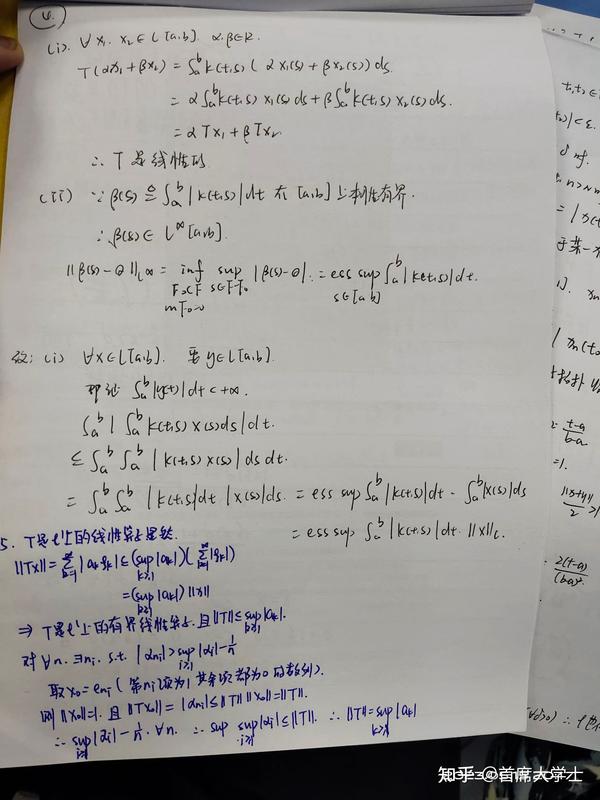 4.
(i). ∀ x₁. x₂ ∈ L[a,b]. α,β∈R.
T(αx₁+βx₂) = ∫ₐᵇ k(t,s) ( α x₁(s) + βx₂(s)) ds
= α ∫ₐᵇ k(t,s) x₁(s) ds + β∫ₐᵇ k(t,s) x₂(s) ds.
= α Tx₁ + β Tx₂
∴ T 是线性的
(ii) ∵ β(s) ≙ ∫ₐᵇ | k(t,s) | dt 在 [a,b] 上本性有界.
∴ β(s) ∈ L^∞ [a,b].
‖β(s) - θ‖_{L∞} = inf sup | β(s) - θ | = ess sup ∫ₐᵇ | k(t,s) | dt.
s∈[a,b]
(i) ∀x∈L[a,b]. 要 y∈L[a,b].
即证 ∫ₐᵇ |y(t)| dt < +∞.
∫ₐᵇ | ∫ₐᵇ k(t,s) x(s) ds | dt.
≤ ∫ₐᵇ ∫ₐᵇ | k(t,s) x(s) | ds dt.
= ∫ₐᵇ ∫ₐᵇ | k(t,s) | dt |x(s)| ds = ess sup ∫ₐᵇ | k(t,s) | dt · ∫ₐᵇ |x(s)| ds
= ess sup ∫ₐᵇ | k(t,s) | dt · ‖x‖_L
5. T是l¹上的线性算子显然.
‖Tx‖ = ∑_{k=1}^∞ | aₖ ξₖ | ≤ (sup_{k≥1} |aₖ|) (∑_{k=1}^∞ |ξₖ|)
= (sup_{k≥1} |aₖ|) ‖x‖
⇒ T是l¹上的有界线性算子. 且 ‖T‖ ≤ sup_{k≥1} |aₖ|.
对 ∀n. ∃nᵢ. s.t. | α_{nᵢ} | > sup_{i≥1} |αᵢ| - 1/n
取 x₀ = e_{nᵢ} ( 第nᵢ项为1 其余项都为0的数列 ).
则 ‖x₀‖=1. 且 ‖T‖ = |α_{nᵢ}| ≤ ‖T‖ ‖x₀‖ = ‖T‖.
∴ sup_{i≥1} |αᵢ| - 1/n. ∀n. ∴ sup sup_{i≥1} |αᵢ| ≤ ‖T‖. ∴ ‖T‖ = sup_{k≥1} |aₖ|
t₁,t₂ ∈
| < ε.
n > N
t-a
b-a
=1.
‖x+y‖
2
2(t-a)
(b-a)²
知乎 @首席大学士